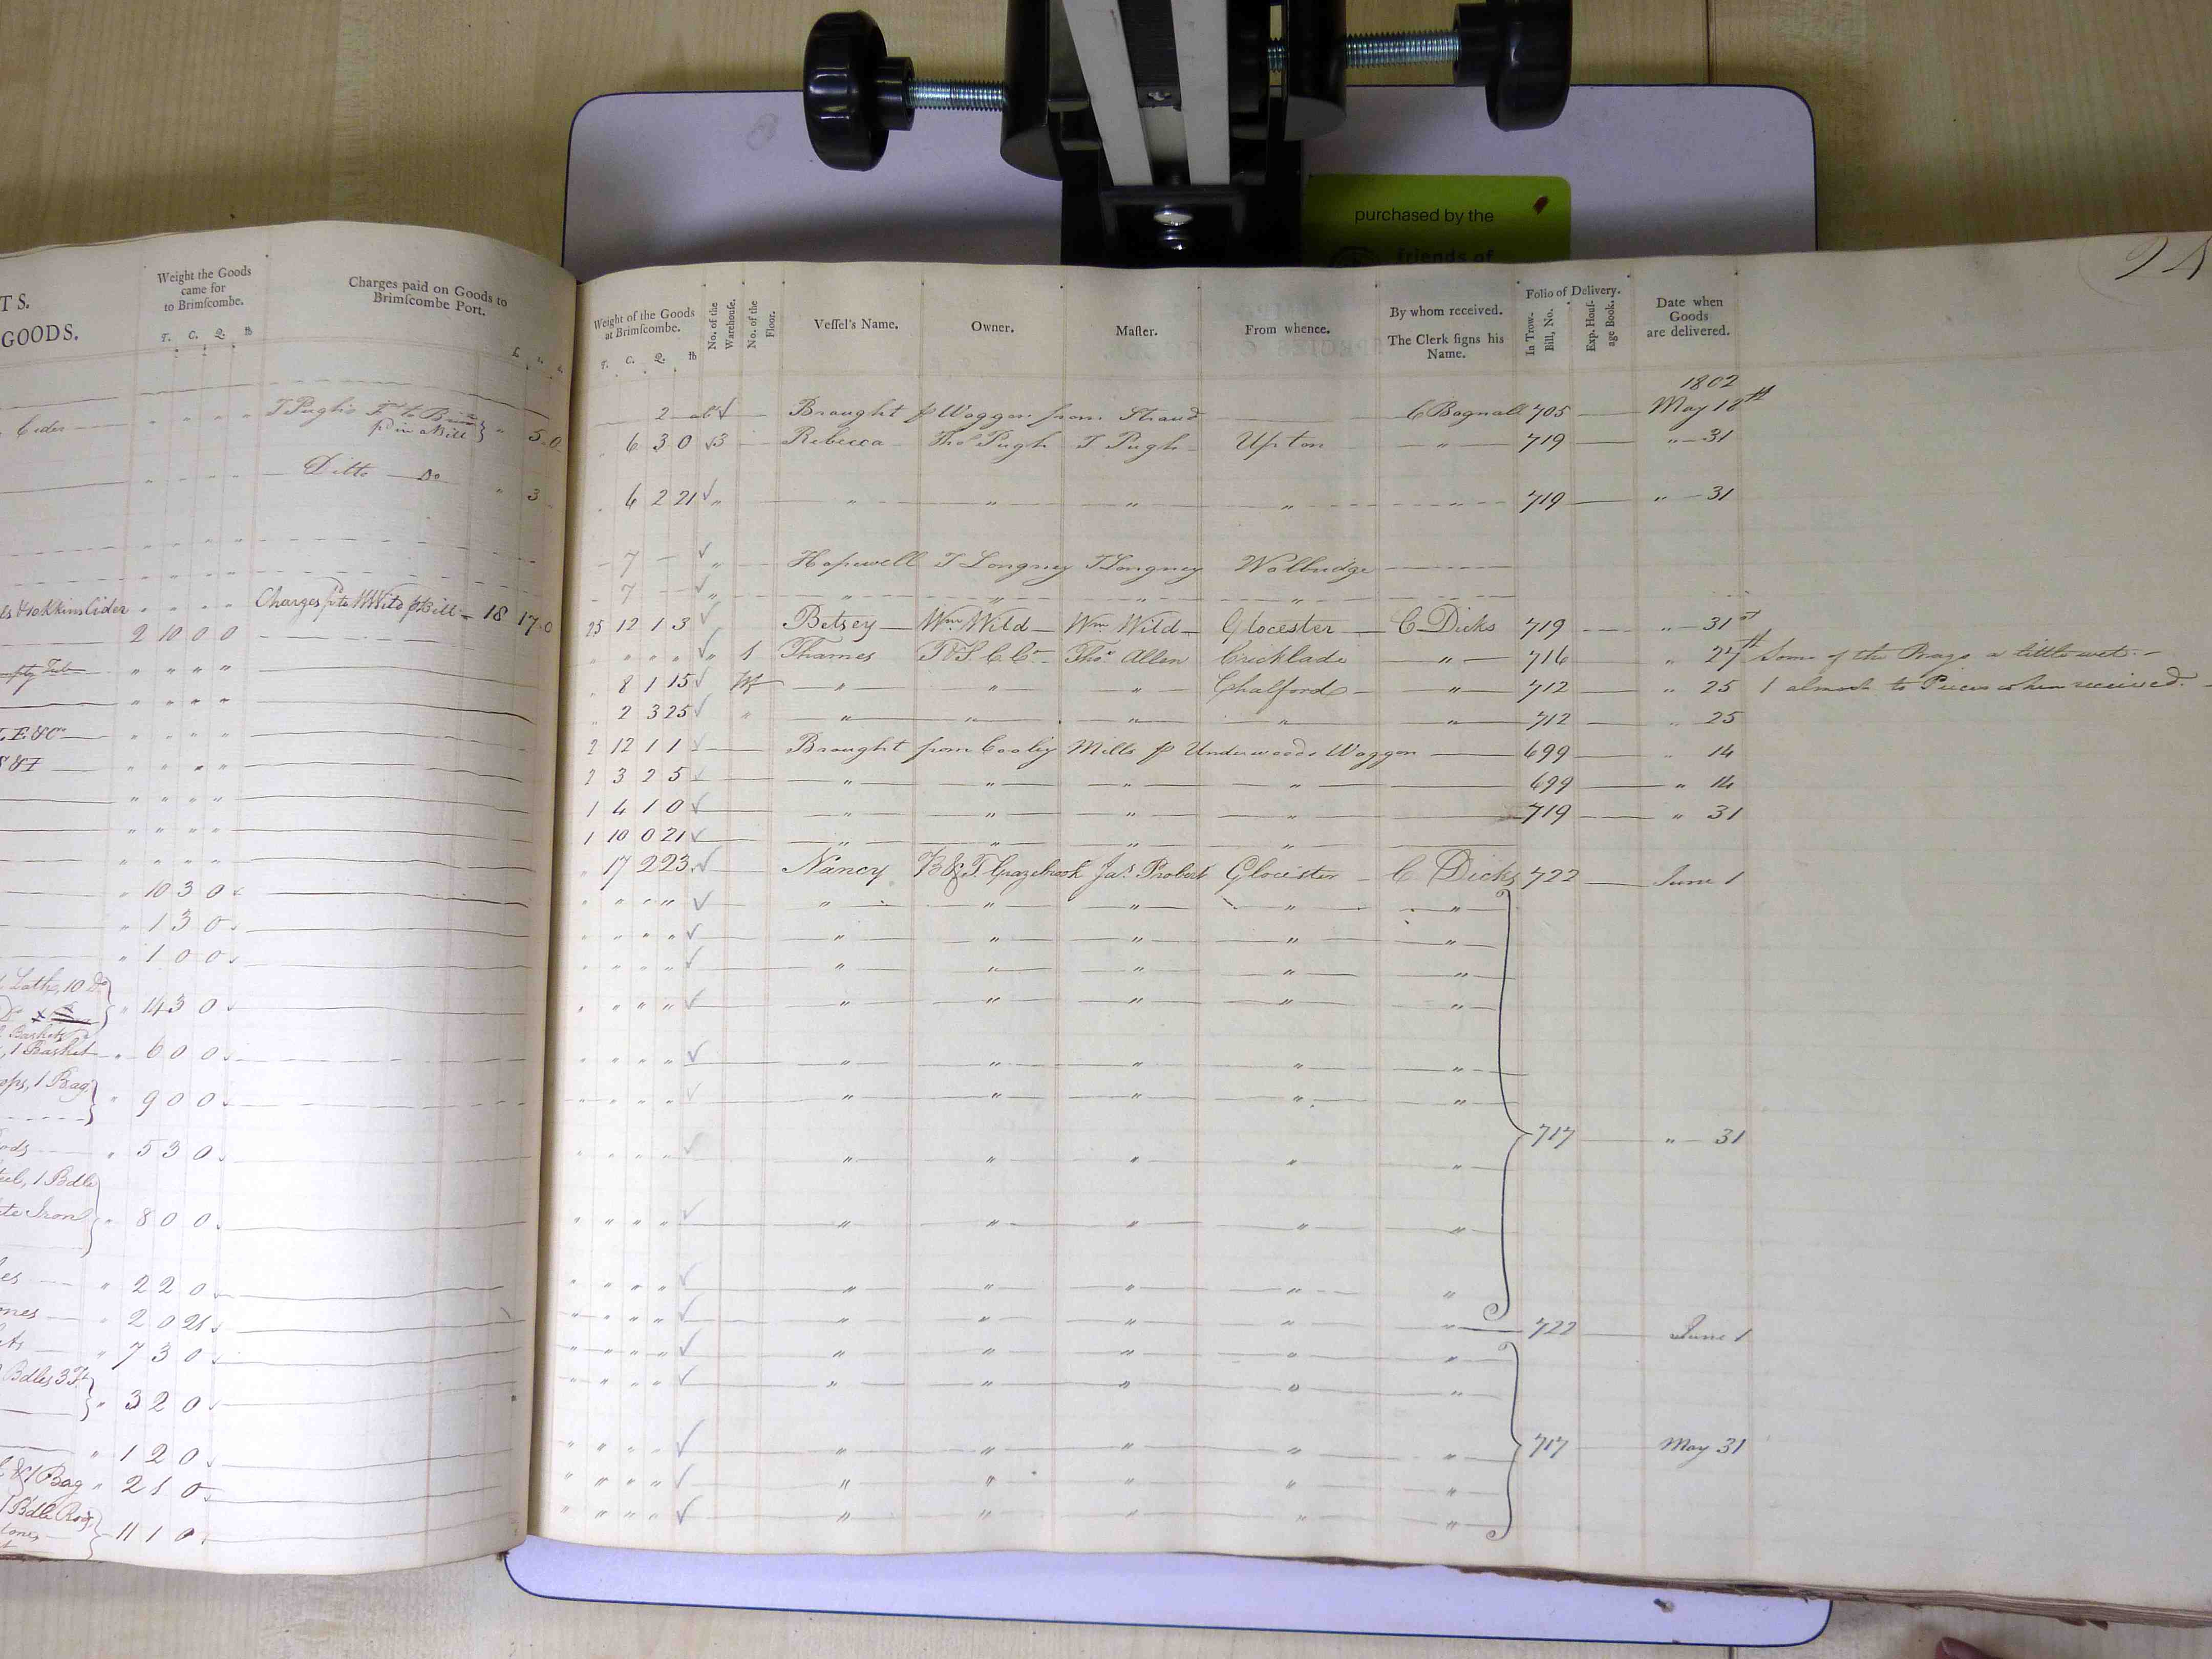 purchased by the
friends of
TS.
GOODS.
Weight the Goods
came for
to Brimſcombe.
T. C. Q. lb
Charges paid on Goods to
Brimſcombe Port.
Cider
5 0
Ditto Do 3
Cider 18 17 0
2 10 0 0
" " " "
" " " "
" " " "
" " " "
" " " "
" " " "
" " " "
" 10 3 0
" 1 3 0
" 1 0 0
Lath, 10 Do
" 14 3 0
Baskets
, 1 Basket " 6 0 0
, 1 Bag
" 9 0 0
" 5 3 0
, 1 Bdle
Iron " 8 0 0
" 2 2 0
" 2 0 21
" 7 3 0
Bdles 3 Ft
" 3 2 0
" 1 2 0
& 1 Bag " 2 1 0
1 Bdle
" 11 1 0
Weight of the Goods
at Brimſcombe.
T. C. Q. lb
No. of the
Warehouſe.
No. of the
Floor.
Veſſel's Name.
Owner.
Maſter.
From whence.
By whom received.
The Clerk ſigns his
Name.
Folio of Delivery.
In Trow-
Bill, No.
Exp. Houſ-
age Book.
Date when
Goods
are delivered.
1802
2 Brought p Waggon from Stroud C Bagnall 705 May 18th
6 3 0 3 Rebecca Thos Pugh T Pugh Upton " 719 " 31
6 2 21 " " " " " " 719 " 31
7 " Hopewell T Longney T Longney Walbridge
7 " " " " "
25 12 1 3 Betsey Wm Wild Wm Wild Glocester C Dicks 719 " 31st
" " " " " 1 Thames T&S C Co Thos Allen Cricklade " 716 " 27th Some of the Bags a little wet
" 8 1 15 " " " Chalford " 712 " 25 1 almost to Pieces when received
" 2 3 25 " " " " " " 712 " 25
2 12 1 1 Brought from Cooley Mills p Underwoods Waggon 699 " 14
2 3 2 5 " " " " 699 " 14
1 4 1 0 " " " " 719 " 31
1 10 0 21 " " " "
" 17 2 23 Nancy B & T Grazebrook Jas Probert Glocester C Dicks 722 June 1
" " " " " " " " "
" " " " " " " " "
" " " " " " " " "
" " " " " " " " "
" " " " " " " " "
" " " " " " " " "
717 " 31
" " " " " " " " "
" " " " " " " " "
" " " " " " " " "
" " " " " " " " " 722 June 1
" " " " " " " " "
" " " " " " " " "
" " " " " " " " " 717 May 31
" " " " " " " " "
" " " " " " " " "